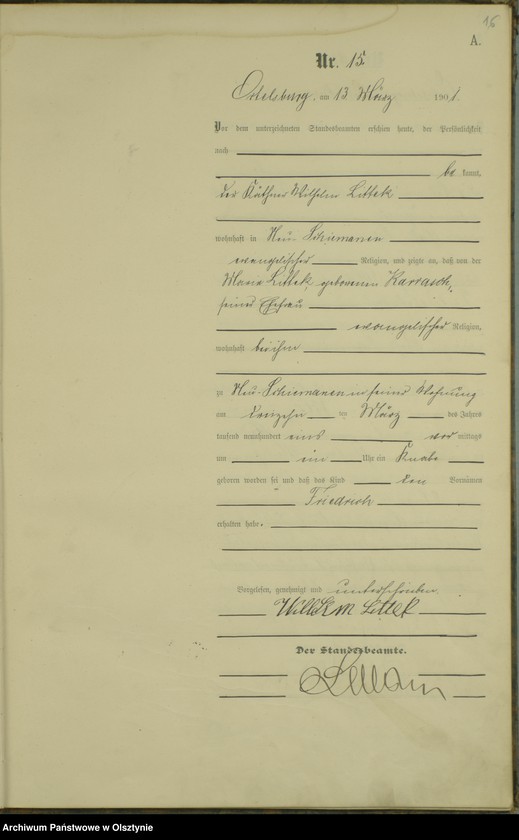 16
A.
Nr. 15
Ortelsburg, am 13 März 1901.
Vor dem unterzeichneten Standesbeamten erschien heute, der Persönlichkeit
nach
be kannt,
der Käthner Wilhelm Littek
wohnhaft in Neu Schiemanen
evangelischer Religion, und zeigte an, daß von der
Maria Littek, geborenen Karrasch,
seiner Ehefrau
evangelischer Religion,
wohnhaft bei ihm
zu Neu-Schiemanen in seiner Wohnung
am ten März des Jahres
tausend neunhundert eins vor mittags
um ein Uhr ein Knabe
geboren worden sei und daß das Kind den Vornamen
Friedrich
erhalten habe.
Vorgelesen, genehmigt und unterschrieben.
Wilhelm Littek
Der Standesbeamte.
Archiwum Państwowe w Olsztynie